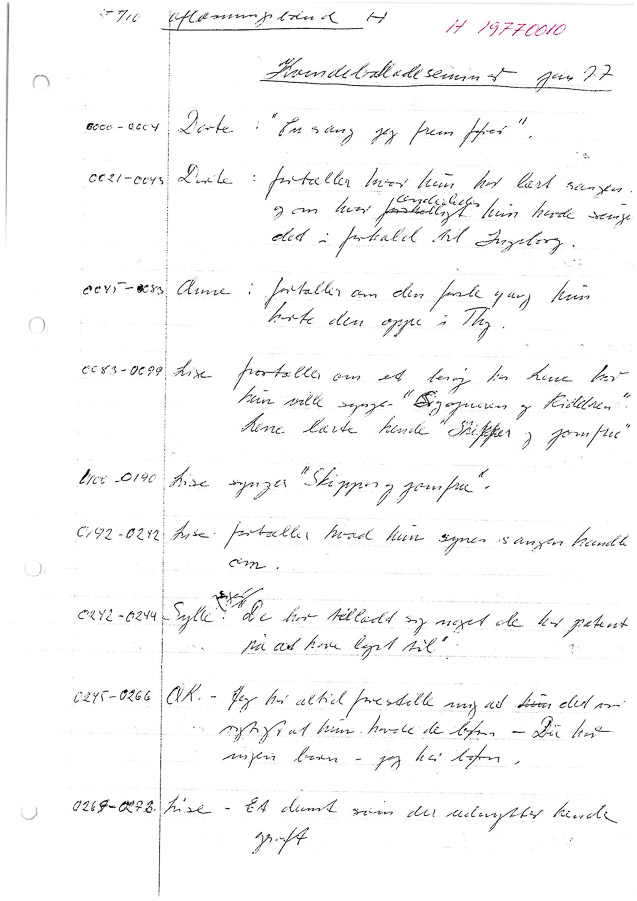 aflæsningsbånd H
H 19770010
Kvindeballadeseminar jan 77
0000-0004 Dorte : "En sang jeg frem fører".
0021-0045 Dorte : fortæller hvor hun har lært sangen.
og om hvor anderledes hun havde sunget
det i forhold til Ingeborg.
0045-0083 Anne : fortæller om den første gang hun
hørte den oppe i Thy.
0083-0099 Lise fortæller om et besøg hos Lene hvor
hun ville synge "Sigøjneren og Ridderen".
Lene lærte hende "Skipper og jomfru"
0100-0190 Lise synger "Skipper og jomfru".
0192-0242 Lise fortæller hvad hun synes sangen handler
om.
0242-0244 Sylle: siger "De har tilladt sig noget de har patent
på at have lagt til"
0245-0266 AK. - Jeg har altid forestillet mig at det var
vigtigt at hun havde de børn - Du har
ingen børn - jeg har børn.
0267-0273. Lise - Et dumt som der udnytter hende
groft